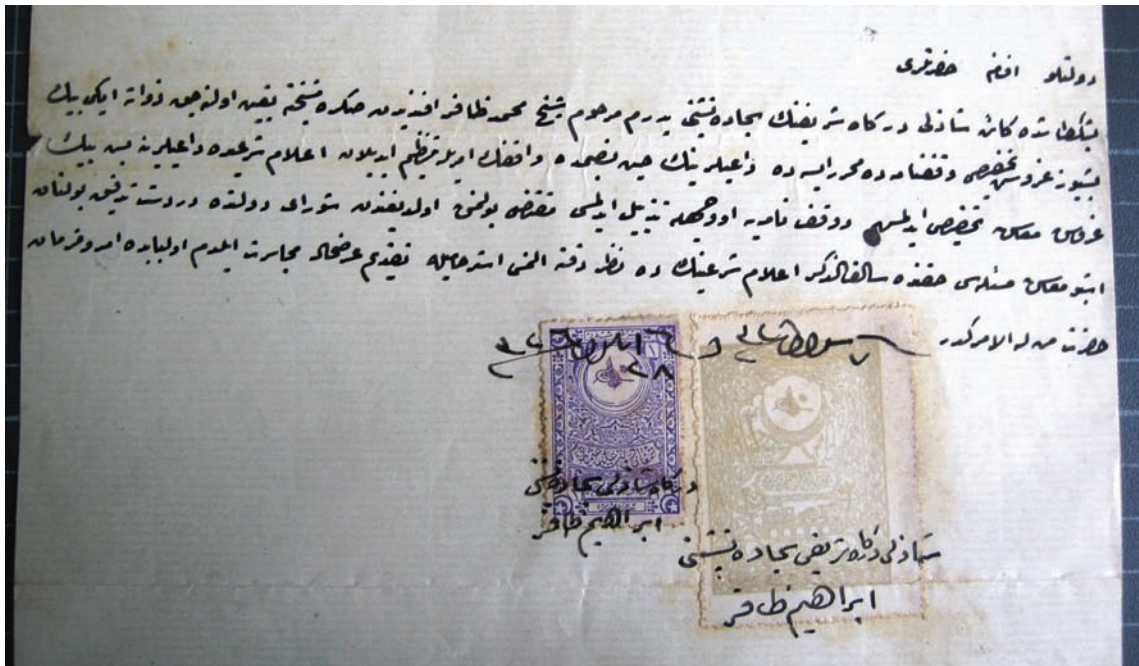 دولتلو افندم حضرتلری
بشکطاشده کائن شاذلی درگاه شریفنك سجاده نشینی پدرم مرحوم شیخ محمد ظافر افندیدن صکره مشیخته تعیین اولنه جق ذواته ایکی بیك
بشیوز غروش تخصیصی وقفنامه ده محرر ایسه ده داعیلرینك حین نصبمده واقفك امریله تنظیم ایدیلان اعلام شرعیده داعیلرینه بش بیك
غروش معاش تخصیص ایدلمش ووقفنامه اووجهله تذییل ایدلمسی مقتضی بولنمش اولدیغندن شورای دولتده دردست تدقیق بولنان
اشبو معاش مسئله سی حقنده سالف الذکر اعلام شرعینك ده نظر دقته النمسی استرحامیله تقدیم عرضحاله مجاسرت ایلدم اولبابده امر وفرمان
حضرت من له الامرکدر
٢٨
درگاه شاذلی سجاده نشینی
ابراهیم ظافر
شاذلی درگاه شریفی سجاده نشینی
ابراهیم ظافر